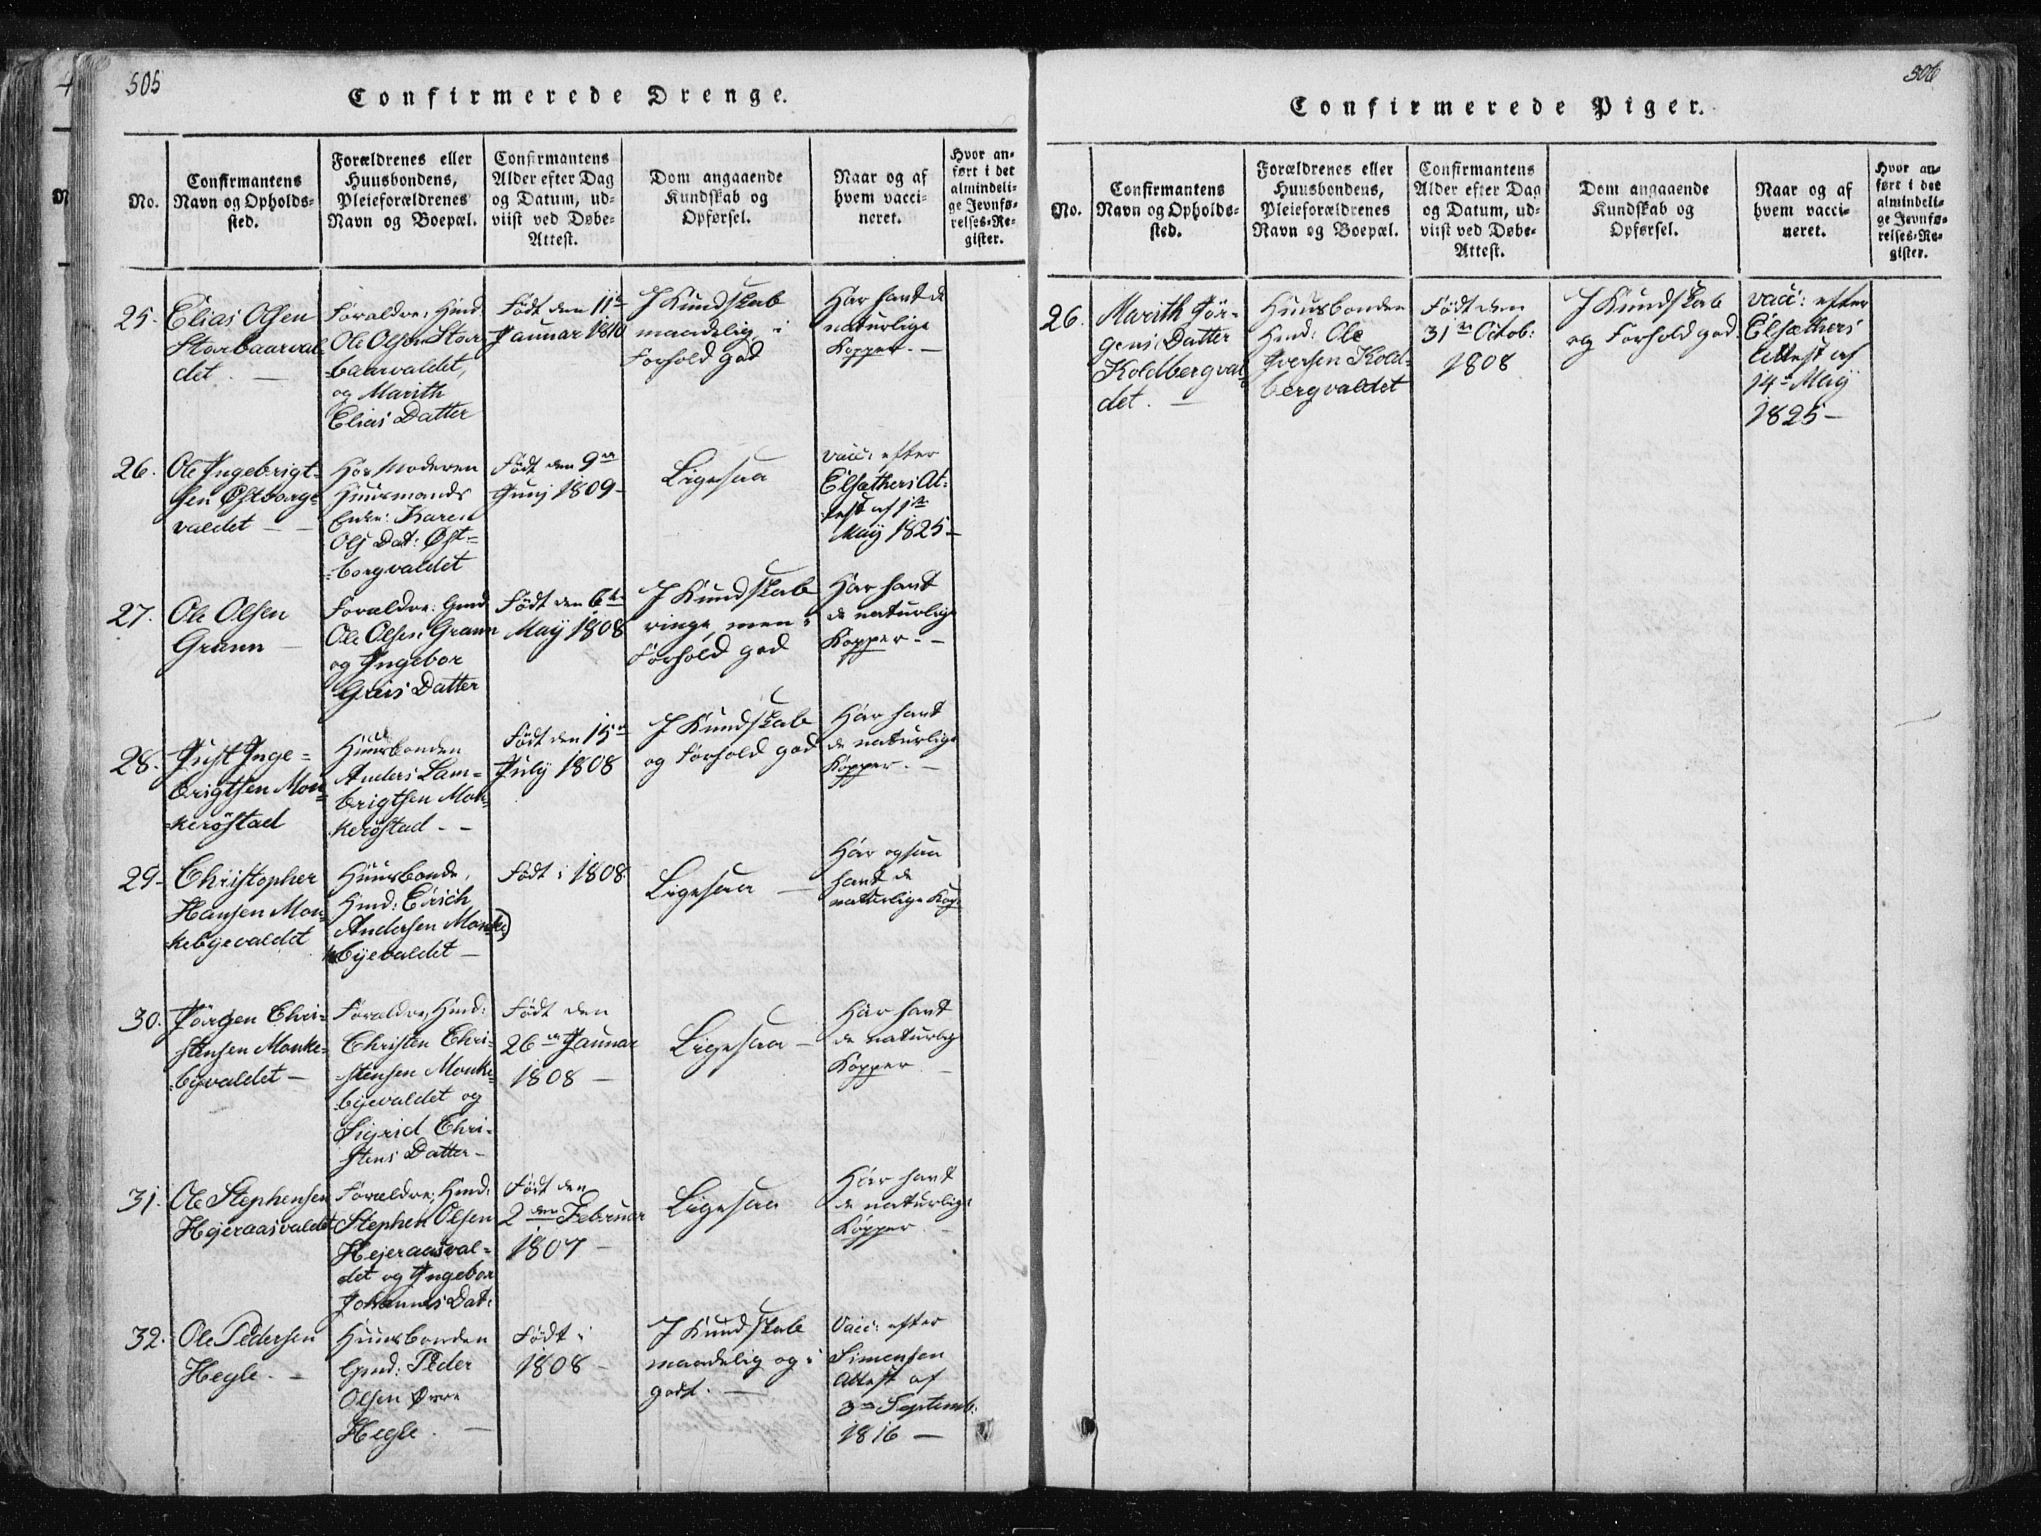 505
Confirmerede Drenge.
No.
Confirmantens
Navn og Opholds-
sted.
Forældrenes eller
Huusbondens,
Pleieforældrenes
Navn og Boepæl.
Confirmantens
Alder efter Dag
og Datum, ud-
viist ved Døbe-
Attest.
Dom angaaende
Kundskab og
Opførsel.
Naar og af
hvem vacci-
neret.
Hvor an-
ført i det
almindeli-
ge Jevnfø-
relses-Re-
gister.
25.
Elias Olsen
Storbaarval
det. —
Forældre; Hmd
Ole Olsen Stor
-baarvaldet,
og Marith
Elias Datter
Født den 11te
Januar 1810
I Kundskab
maadelig, i
Forhold god
Har havt de
naturlige
Kopper. —
26.
Ole Ingebrigt-
sen Østborg-
valdet —
Hos Moderen
Huusmands
Enke: Karen
Ols Dat: Øst-
-borgvaldet
Født den 9de
Junj 1809 -
Ligesaa
vacc: efter
Elsæthers At-
test af 1ste
Maÿ 1825 —
27.
Ole Olsen
Grann —
Forældre: Gmd
Ole Olsen Grann
og Ingebor
Datter
Født den 6te
Maÿ 1808
I Kundskab
ringe, men i
Forhold god
Har havt
de naturlige
Kopper. —
28.
Just Inge-
brigtsen Mon-
kerøstad
Huusbonden
Anders Lam-
brigtsen Mon-
kerøstad - -
Født den 15de
Julÿ 1808
I Kundskab
og Forhold god
Har havt
de naturlige
Kopper. —
29.
Christopher
Hansen Mon-
kebÿevaldet
Huusbonde,
Hmd: Erich
Andersen Monke
bÿevaldet —
Født i 1808
Ligesaa —
Har ogsaa
havt de
naturlige Kop-
30.
Jørgen Chri-
stensen Monke-
bÿvaldet —
Forældre, Hmd:
Christen Chri-
stensen Monke-
bÿevaldet og
Sigrid Chri-
stens Datter —
Født den
26de Januar
1808 —
Ligesaa —
Har havt
de naturlig
Kopper. —
31.
Ole Stephensen
Hejeraasvaldet
Forældre, Hmd:
Stephen Olsen
Hejeraasval-
det og Ingebor
Johannes Dat:
Født den
2den Februar
1807 —
Ligesaa
Har havt
de naturlige
Kopper. —
32.
Ole Pedersen
Hegle. —
Huusbonden
Gmd: Peder
Olsen Øvre
Hegle. —
Født i
1808 —
I Kundskab
maadelig og i
godt. —
Vacc: efter
Simensen
Attest af
3de Septemb:
1816 —
306
Confirmerede Piger.
No.
Confirmantens
Navn og Opholds-
sted.
Forældrenes eller
Huusbondens,
Pleieforældrenes
Navn og Boepæl.
Confirmantens
Alder efter Dag
og Datum, ud-
viist ved Døbe-
Attest.
Dom angaaende
Kundskab og
Opførsel.
Naar og af
hvem vacci-
neret.
Hvor an-
ført i det
almindeli-
ge Jevnfø-
relses-Re-
gister.
26.
Marith Jör-
gens: Datter
Koldbergval-
det. —
Huusbonden
Hmd: Ole
Iversen Kold-
bergvaldet
Født den
31te Octob:
1808
I Kundskab
og Forhold god
vacc: efter
Elsæthers
Attest af
14de Maÿ
1825 —